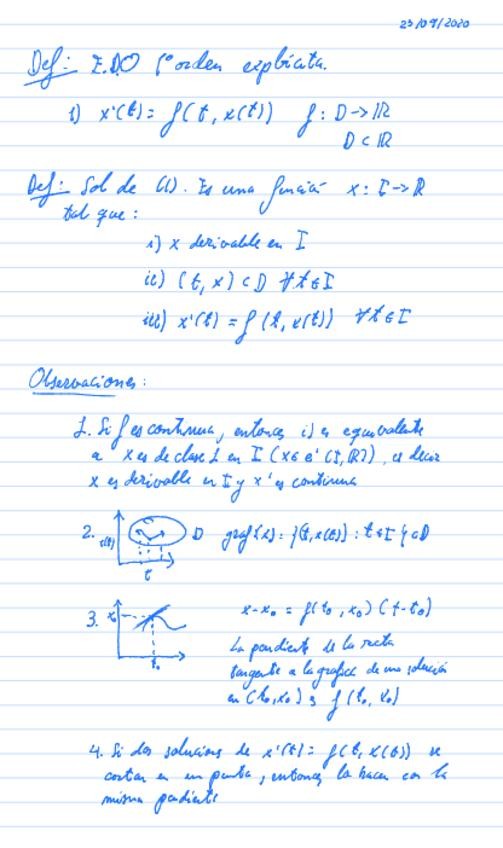 23/09/2020
Def: E.D.O 1º orden explicita.
1) x'(t) = f(t, x(t)) f: D -> ℝ
D ⊂ ℝ
Def: Sol de (1). Es una función x: I -> ℝ
tal que:
i) x derivable en I
ii) (t, x) ⊂ D ∀t∈I
iii) x'(t) = f(t, x(t)) ∀t∈I
Observaciones:
1. Si f es continua, entonces i) es equivalente
a x es de clase 1 en I (x∈ C¹(I, ℝ)), es decir
x es derivable en I y x' es continua
2. x(t) t D graf(x) = {(t, x(t)) : t∈I} ⊂ D
3. x₀ t₀ x-x₀ = f(t₀, x₀)(t-t₀)
La pendiente de la recta
tangente a la grafica de una solución
en (t₀, x₀) es f(t₀, x₀)
4. Si dos soluciones de x'(t) = f(t, x(t)) se
cortan en un punto, entonces lo hacen con la
misma pendiente